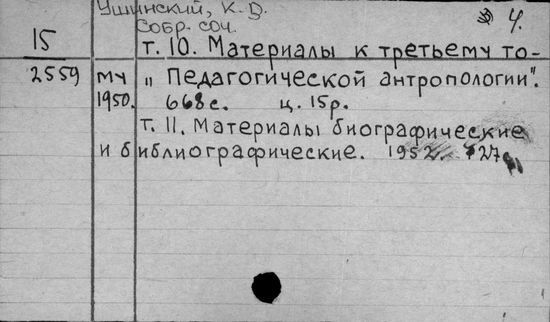 Ушинский, К. Д.
4.
Собр. соч.
15
т. 10. Материалы к третьему то-
2559
му „Педагогической антропологии".
1950. 668 с. ц. 15 р.
т. 11. Материалы биографические
и библиографические. 1952. 727 с.